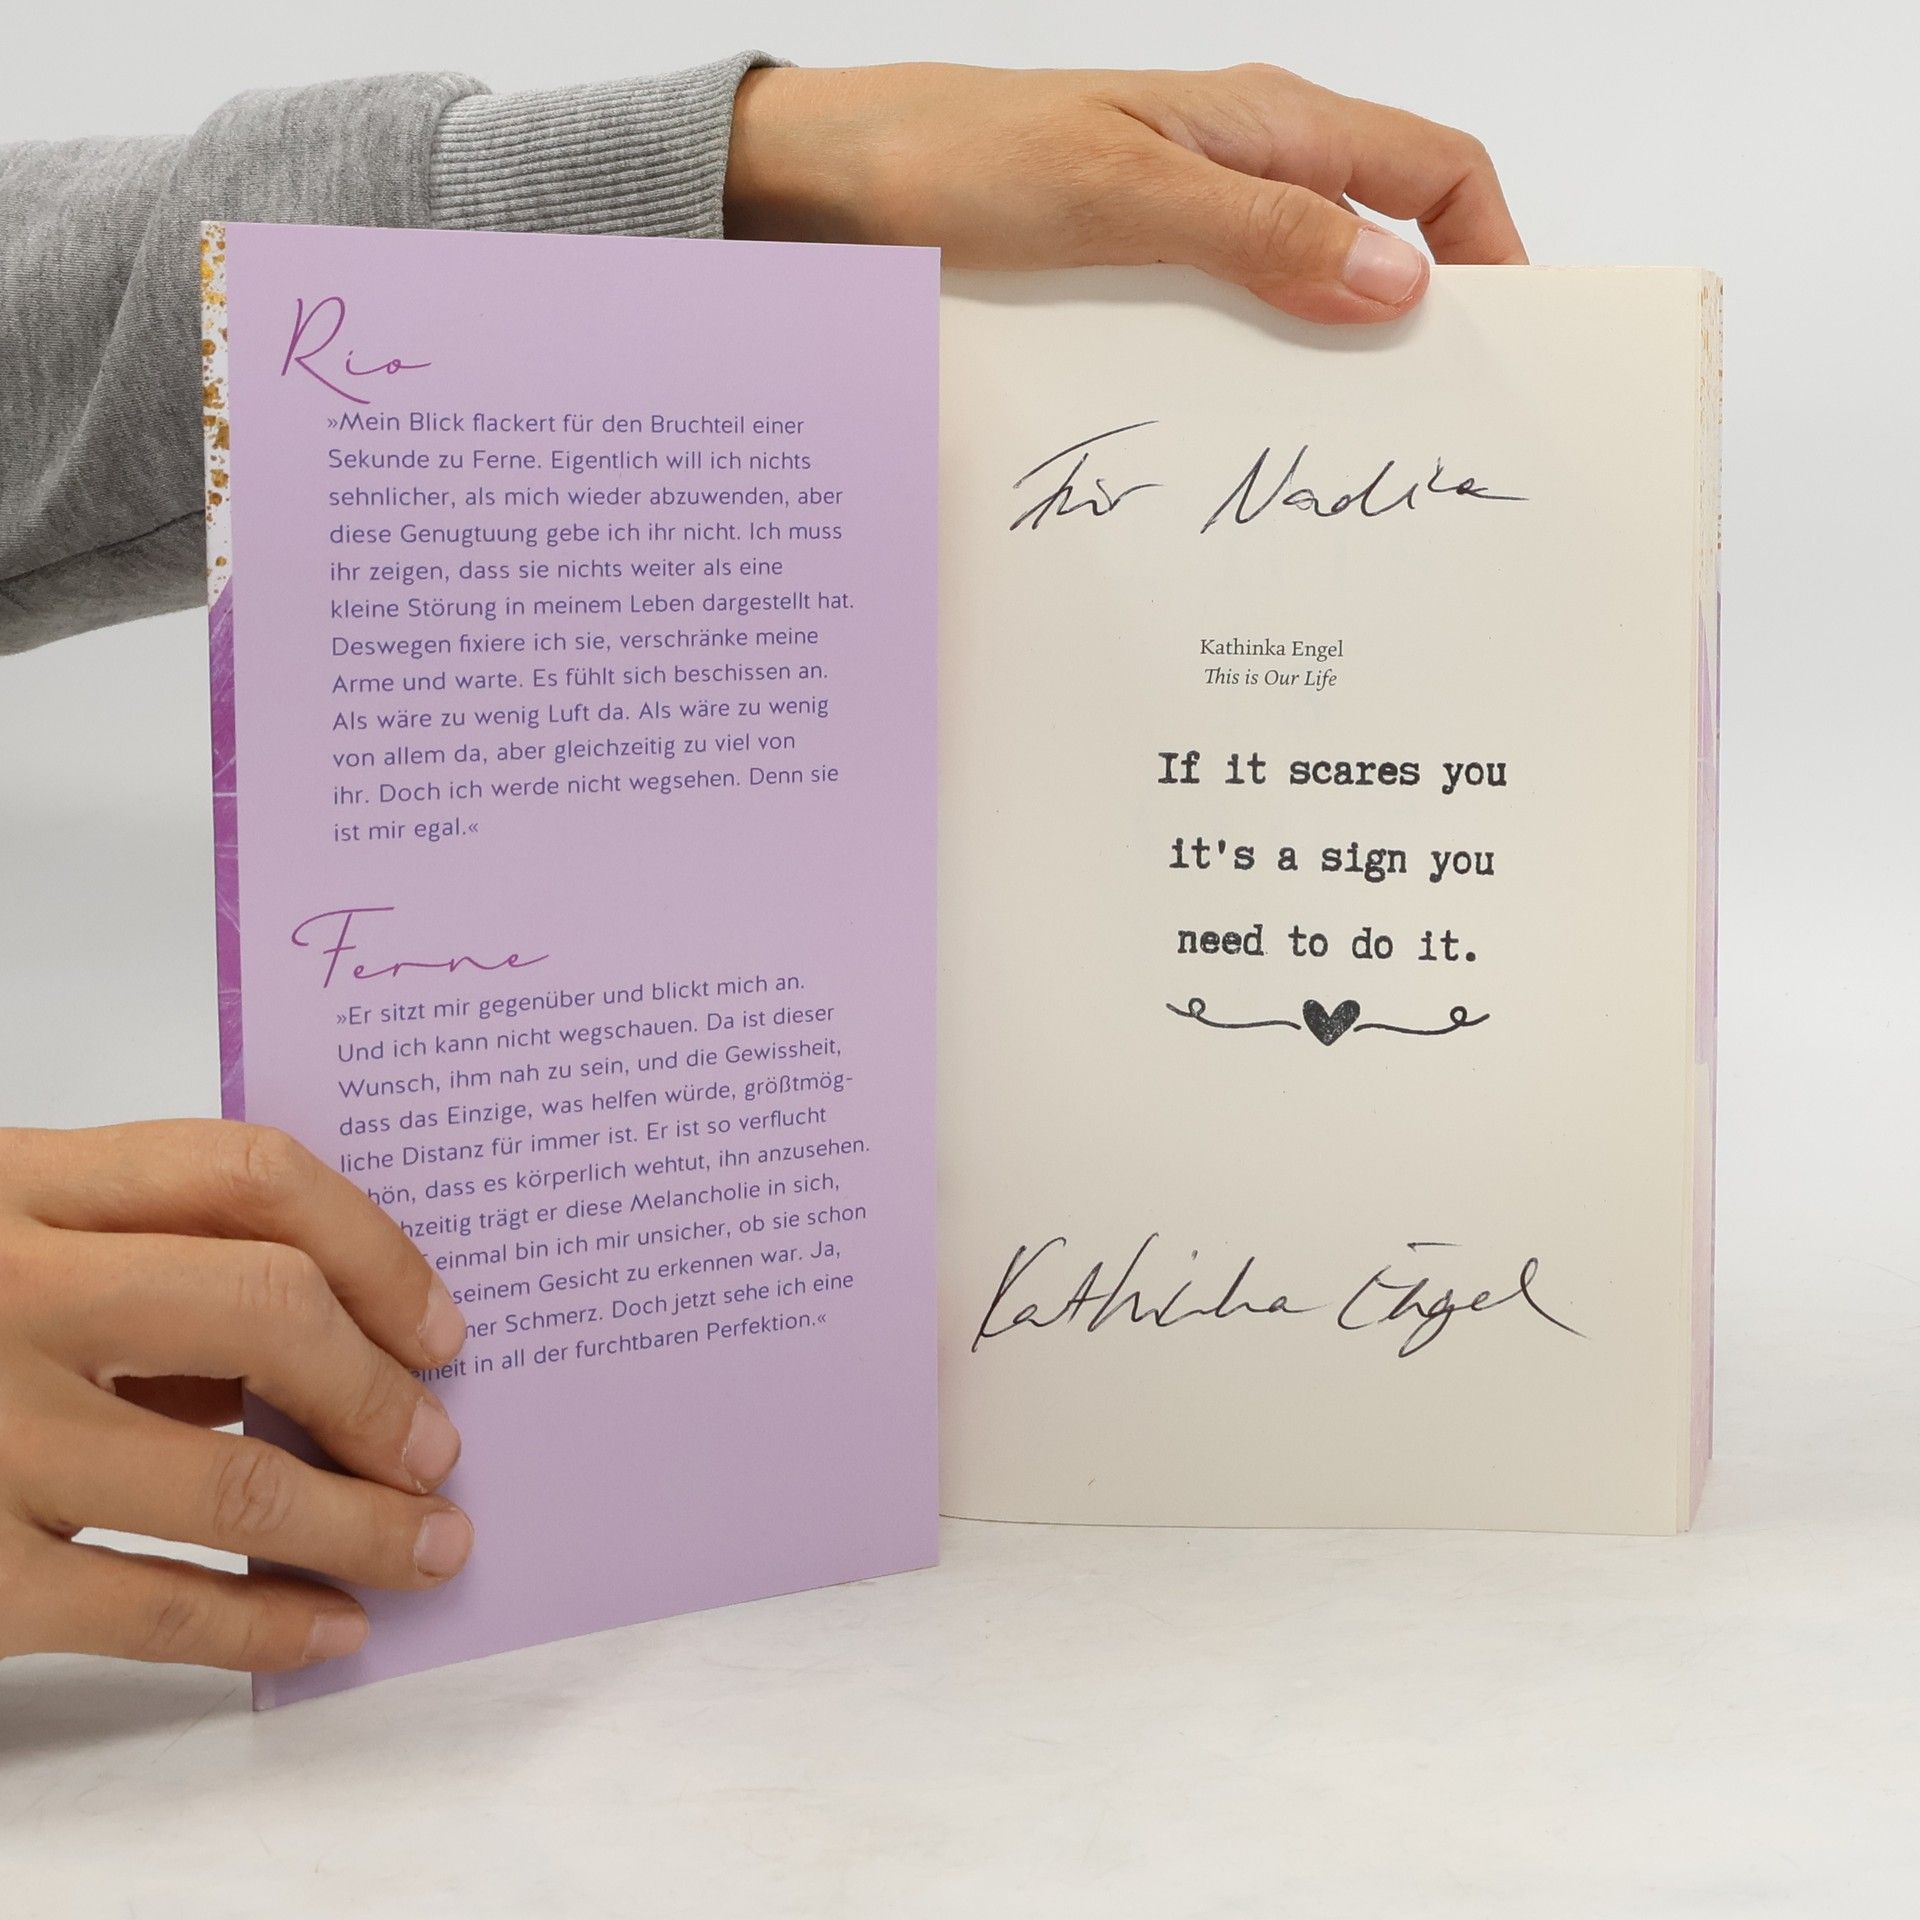 Rio
»Mein Blick flackert für den Bruchteil einer
Sekunde zu Ferne. Eigentlich will ich nichts
sehnlicher, als mich wieder abzuwenden, aber
diese Genugtuung gebe ich ihr nicht. Ich muss
ihr zeigen, dass sie nichts weiter als eine
kleine Störung in meinem Leben dargestellt hat.
Deswegen fixiere ich sie, verschränke meine
Arme und warte. Es fühlt sich beschissen an.
Als wäre zu wenig Luft da. Als wäre zu wenig
von allem da, aber gleichzeitig zu viel von
ihr. Doch ich werde nicht wegsehen. Denn sie
ist mir egal.«
Ferne
»Er sitzt mir gegenüber und blickt mich an.
Und ich kann nicht wegschauen. Da ist dieser
Wunsch, ihm nah zu sein, und die Gewissheit,
dass das Einzige, was helfen würde, größtmög-
liche Distanz für immer ist. Er ist so verflucht
dass es körperlich wehtut, ihn anzusehen.
trägt er diese Melancholie in sich,
einmal bin ich mir unsicher, ob sie schon
seinem Gesicht zu erkennen war. Ja,
Schmerz. Doch jetzt sehe ich eine
in all der furchtbaren Perfektion.«
Für Nadia
Kathinka Engel
This is Our Life
If it scares you
it's a sign you
need to do it.
Kathinka Engel